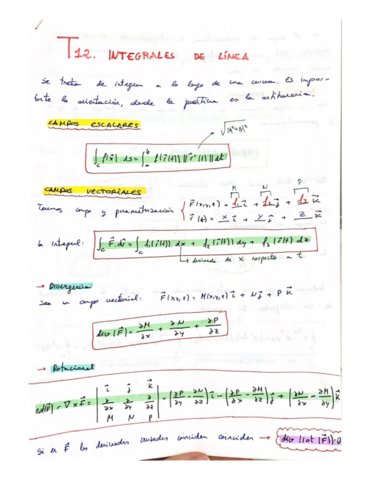 T12. INTEGRALES DE LÍNEA
Se trata de integrar a lo largo de una curva. Es impor-
tante la orientación, donde la positiva es la antihoraria.
CAMPOS ESCALARES
∫_C f(x⃗) ds = ∫_a^b f(r⃗(t)) ||r⃗'(t)|| dt
CAMPOS VECTORIALES
M N P
Tenemos campo y parametrización { F⃗(x,y,z) = f₁ i⃗ + f₂ j⃗ + f₃ k⃗
r⃗(t) = x i⃗ + y j⃗ + z k⃗
la integral: ∫_C F⃗·dr⃗ = ∫_C f₁(r⃗(t)) dx + f₂(r⃗(t)) dy + f₃(r⃗(t)) dz
↳ derivada de x respecto a t.
→ Divergencia
Sea un campo vectorial: F⃗(x,y,z) = M(x,y,z) i⃗ + N j⃗ + P k⃗
div (F⃗) = ∂M/∂x + ∂N/∂y + ∂P/∂z
→ Rotacional
rot(F⃗) = ∇ x F⃗ = | i⃗ j⃗ k⃗ ; ∂/∂x ∂/∂y ∂/∂z ; M N P | = (∂P/∂y - ∂N/∂z) i⃗ - (∂P/∂x - ∂M/∂z) j⃗ + (∂N/∂x - ∂M/∂y) k⃗
Si en F⃗ las derivadas cruzadas coinciden → div (rot (F⃗)) = 0